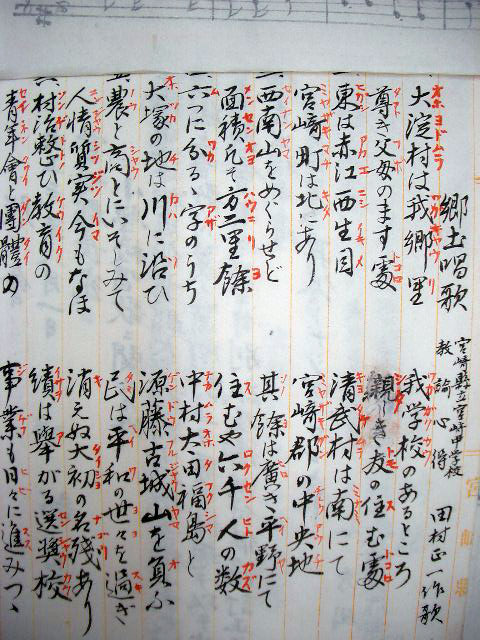 郷土唱歌
宮崎縣立宮崎中学校
教諭心得 田村正一作歌
一大淀村は我郷里 我学校のあるところ
尊き父母のます處 親しき友の住む處
一東は赤江西生目 清武村は南にて
宮崎町は北にあり 宮崎郡の中央地
一西南山をめぐらせど 其餘は廣き平野にて
面積凡そ方二里餘 住むや六千人の数
一六つに分るゝ字のうち 中村太田福島と
大塚の地は川に沿ひ 源藤古城山を負ふ
一農と商とにいそしみて 民は平和の世々を過ぎ
人情質実今もなほ 消えぬ太初の名残あり
一村治整ひ教育の 績は挙がる選奨校
青年會と團體の 事業も日々に進みつゝ